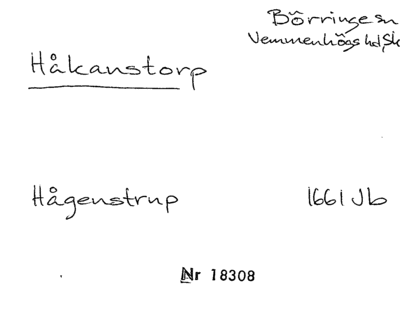 Börringe sn
Vemmenhögs hd, Sk
Håkanstorp
Hågenstrup 1661 Jb
Nr 18308